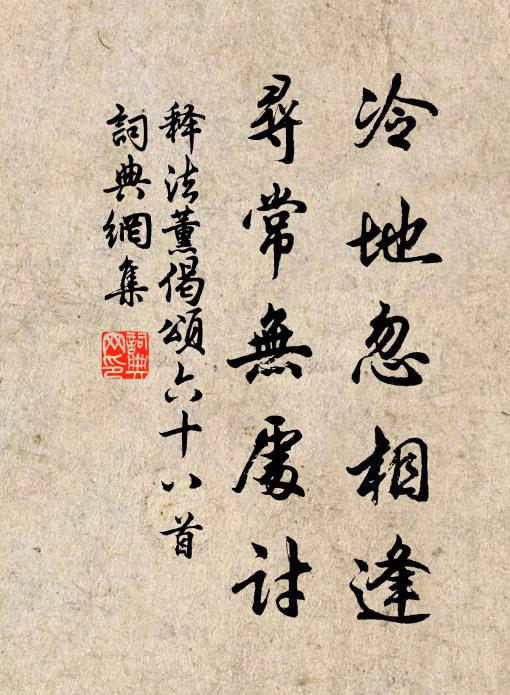 冷地忽相逢
尋常無處討
释法薰偈頌六十八首
詞典網集
詞典網印